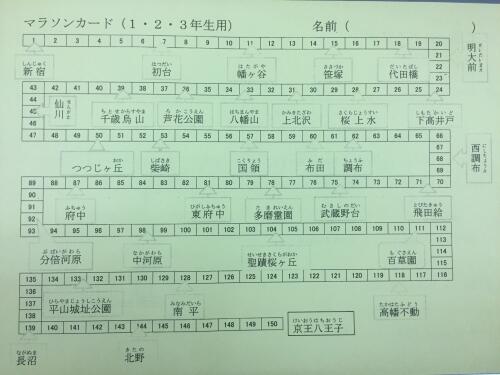 マラソンカード（1・2・3年生用） 名前（ ）
1 2 3 4 5 6 7 8 9 10 11 12 13 14 15 16 17 18 19 20
しんじゅく 新宿
はつだい 初台
はたがや 幡ヶ谷
ささづか 笹塚
だいたばし 代田橋
明大前
21
22
23
43 42 41 40 39 38 37 36 35 34 33 32 31 30 29 28 27 26 25 24
44
45
46
仙川
ちとせからすやま 千歳烏山
ろかこうえん 芦花公園
はちまんやま 八幡山
かみきたざわ 上北沢
さくらじょうすい 桜上水
しもたかいど 下高井戸
47 48 49 50 51 52 53 54 55 56 57 58 59 60 61 62 63 64 65 66
67
68
69
つつじヶ丘 おか
しばさき 柴崎
こくりょう 国領
ふだ 布田
ちょうふ 調布
西調布
89 88 87 86 85 84 83 82 81 80 79 78 77 76 75 74 73 72 71 70
90
91
92
ふちゅう 府中
ひがしふちゅう 東府中
たまれいえん 多磨霊園
むさしのだい 武蔵野台
とびたきゅう 飛田給
93 94 95 96 97 98 99 100 101 102 103 104 105 106 107 108 109 110 111 112
113
114
115
ぶばいがわら 分倍河原
なかがわら 中河原
せいせきさくらがおか 聖蹟桜ヶ丘
もぐさえん 百草園
135 134 133 132 131 130 129 128 127 126 125 124 123 122 121 120 119 118 117 116
136
137
138
ひらやまじょうしこうえん 平山城址公園
みなみだいら 南平
たかはたふどう 高幡不動
139 140 141 142 143 144 145 146 147 148 149 150
けいおうはちおうじ 京王八王子
ながぬま 長沼
きたの 北野